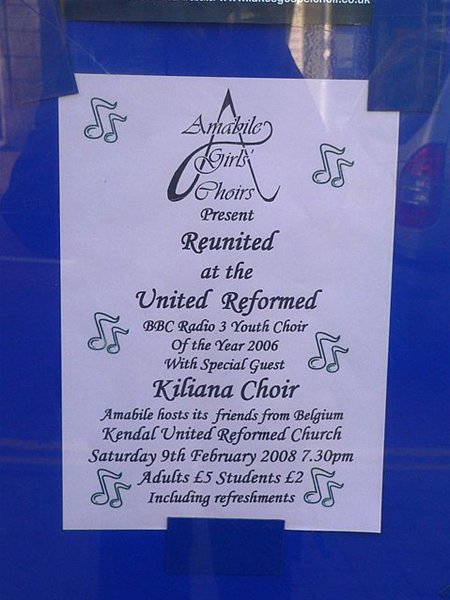 Amabile
Girls'
Choirs
Present
Reunited
at the
United Reformed
BBC Radio 3 Youth Choir
Of the Year 2006
With Special Guest
Kiliana Choir
Amabile hosts its friends from Belgium
Kendal United Reformed Church
Saturday 9th February 2008 7.30pm
Adults £5 Students £2
Including refreshments